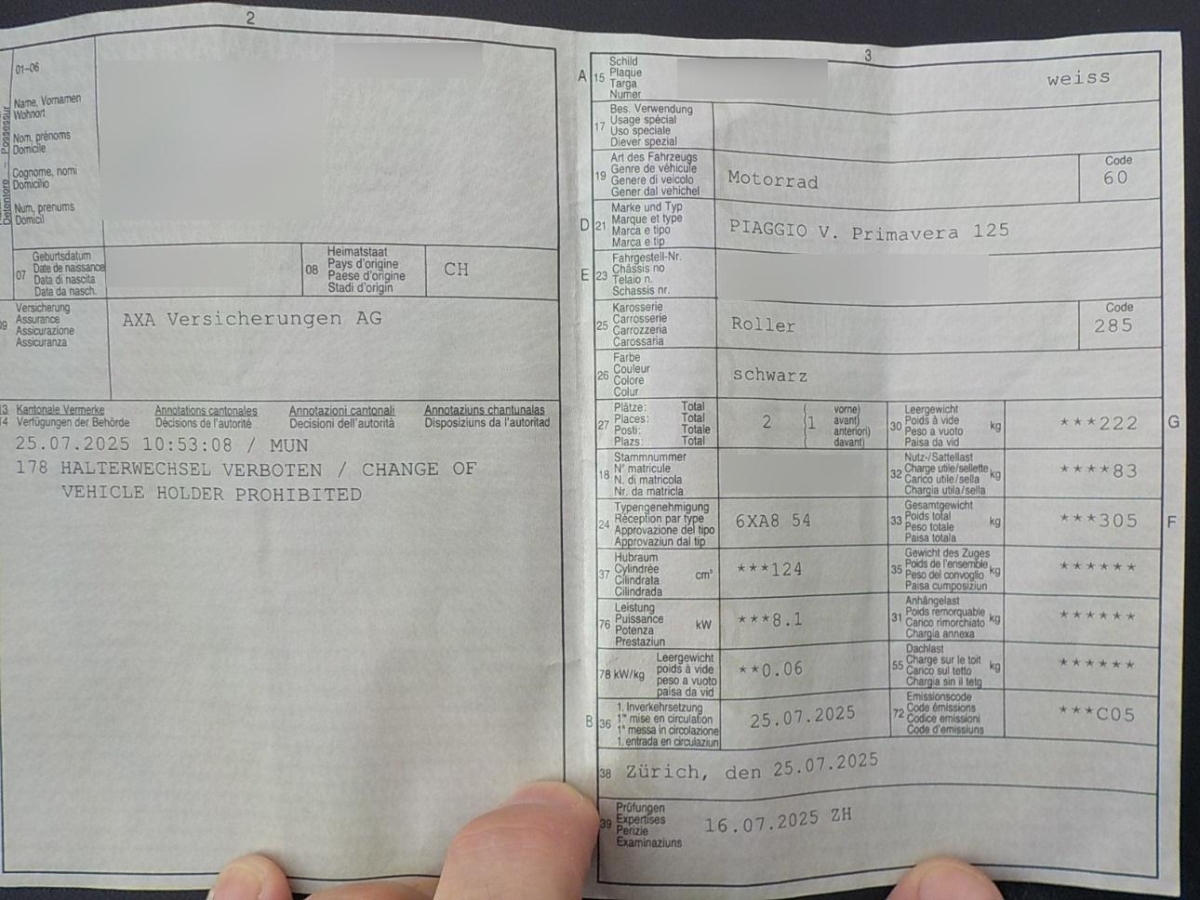 2
01-06
Name, Vornamen
Wohnort
Nom, prénoms
Domicile
Cognome, nomi
Domicilio
Num, prenums
Domicil
Detentore – Possessur
07
Geburtsdatum
Date de naissance
Data di nascita
Data da nasch.
08
Heimatstaat
Pays d'origine
Paese d'origine
Stadi d'origin
CH
09
Versicherung
Assurance
Assicurazione
Assicuranza
AXA Versicherungen AG
13 Kantonale Vermerke Annotations cantonales Annotazioni cantonali Annotaziuns chantunalas
14 Verfügungen der Behörde Décisions de l'autorité Decisioni dell'autorità Disposiziuns da l'autoritad
25.07.2025 10:53:08 / MUN
178 HALTERWECHSEL VERBOTEN / CHANGE OF
VEHICLE HOLDER PROHIBITED
3
A 15
Schild
Plaque
Targa
Numer
weiss
17
Bes. Verwendung
Usage spécial
Uso speciale
Diever spezial
19
Art des Fahrzeugs
Genre de véhicule
Genere di veicolo
Gener dal vehichel
Motorrad
Code
60
D 21
Marke und Typ
Marque et type
Marca e tipo
Marca e tip
PIAGGIO V. Primavera 125
E 23
Fahrgestell-Nr.
Châssis no
Telaio n.
Schassis nr.
25
Karosserie
Carrosserie
Carrozzeria
Carossaria
Roller
Code
285
26
Farbe
Couleur
Colore
Colur
schwarz
27
Plätze: Total
Places: Total
Posti: Totale
Plazs: Total
2
(1
vorne)
avant)
anteriori)
davant)
30
Leergewicht
Poids à vide
Peso a vuoto
Paisa da vid
kg
***222
G
18
Stammnummer
N° matricule
N. di matricola
Nr. da matricla
32
Nutz-/Sattellast
Charge utile/sellette
Carico utile/sella
Chargia utila/sella
kg
****83
24
Typengenehmigung
Réception par type
Approvazione del tipo
Approvaziun dal tip
6XA8 54
33
Gesamtgewicht
Poids total
Peso totale
Paisa totala
kg
***305
F
37
Hubraum
Cylindrée
Cilindrata
Cilindrada
cm³
***124
35
Gewicht des Zuges
Poids de l'ensemble
Peso del convoglio
Paisa cumposiziun
kg
******
76
Leistung
Puissance
Potenza
Prestaziun
kW
***8.1
31
Anhängelast
Poids remorquable
Carico rimorchiato
Chargia annexa
kg
******
78 kW/kg
Leergewicht
poids à vide
peso a vuoto
paisa da vid
**0.06
55
Dachlast
Charge sur le toit
Carico sul tetto
Chargia sin il tetg
kg
******
B 36
1. Inverkehrsetzung
1re mise en circulation
1a messa in circolazione
1. entrada en circulaziun
25.07.2025
72
Emissionscode
Code émissions
Codice emissioni
Code d'emissiuns
***C05
38
Zürich, den 25.07.2025
39
Prüfungen
Expertises
Perizie
Examinaziuns
16.07.2025 ZH